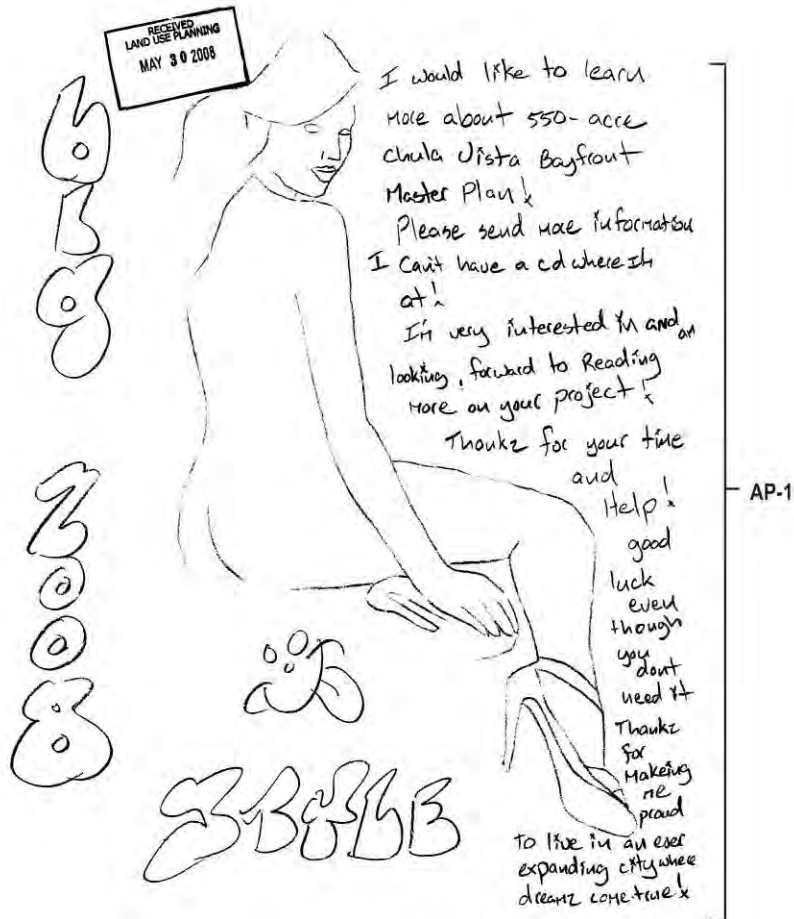 RECEIVED
LAND USE PLANNING
MAY 30 2008
619
2008
I would like to learn
More about 550-acre
Chula Vista Bayfront
Master Plan!
Please send More information
I Can't have a cd where Im
at!
I'm very interested in and am
looking, forward to Reading
More on your project!
Thankz for your time
and
Help!
good
luck
even
though
you
dont
need it
Thankz
for
Makeing
me
proud
to live in an ever
expanding city where
dreamz come true!
AP-1
STYLE